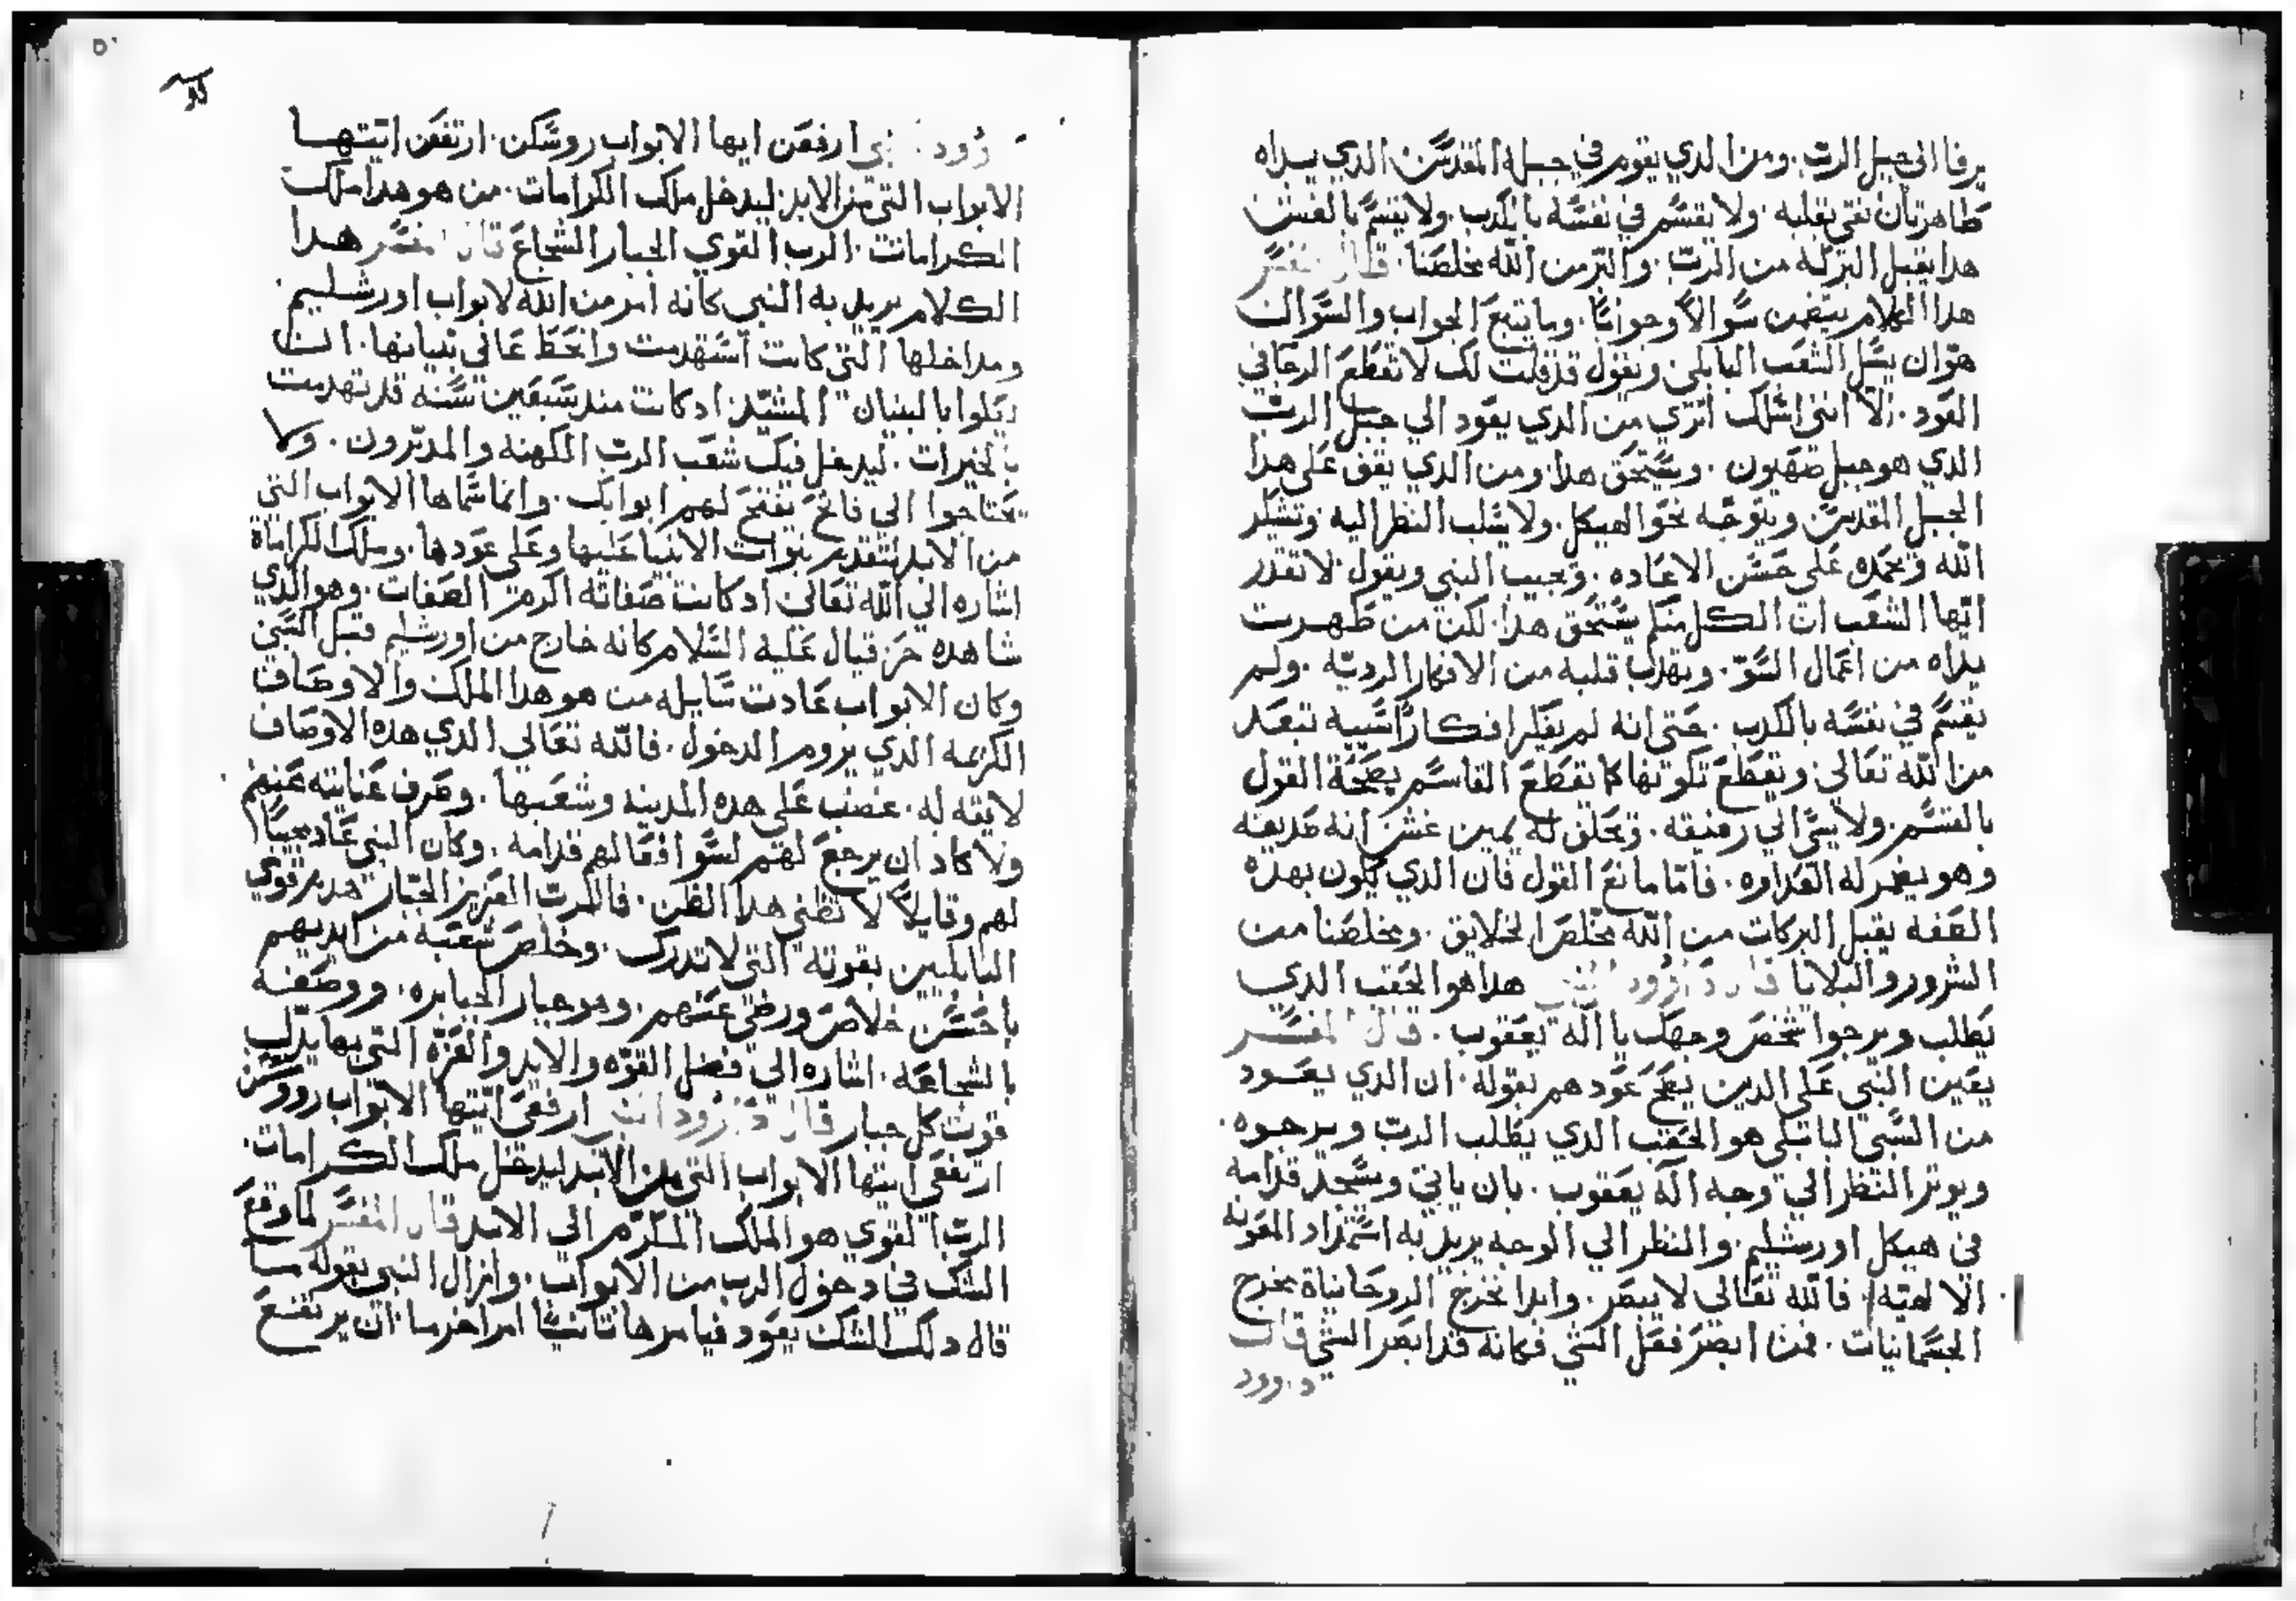 يرقا الى جبل الرب. ومن الدي يقوم في جبله المقدس الدي يداه
طاهرتان نقي بقلبه. ولا يقسم في نفسه بالكدب. ولا يقسم بالغش
هدا يقبل البركه من الرب. والبر من الله مخلصنا. قال المفسر
هدا الكلام يتضمن سوالاً وجواباً. وما يتبع الجواب والسوال
هو ان يسل الشعب البابلي ونقول قد قلت لك لا تقطع الرجا في
العود. الا انني اسلك اتري من الدي يعود الي جبل الرب
الدي هو جبل صهيون. ويستحق هدا ومن الدي يقف على هدا
الجبل المقدس ويتوجه نحو الهيكل. ولا يسلب النظر اليه وتشكر
الله وتحمده على حسن الاعاده. ويجيب النبي ويقول لا تقدر
ايها الشعب ان الكل منكم يستحق هدا. لكن من طهرت
يداه من اعمال السو. وتهدب قلبه من الافكار الرديه. ولم
يقسم في نفسه بالكدب. حتى انه لم يفكر افكاراً شبيه تبعد
من الله تعالى ويقطع تكونها كما يقطع القاسم بصحة القول
بالقسم. ولا يسي الي رفيقه. ويحلف له يمين غش انه صديقه
وهو يضمر له العداوه. فاما مانع القول فان الدي يكون بهده
الصفه يقبل البركات من الله مخلص الخلايق. ومخلصنا من
الشرور والبلايا قال داوود النبي هدا هو الحقب الدي
يطلب ويرجوا شخص وجهك يا اله يعقوب. قال المفسر
يعين النبي على الدين يصح عودهم بقوله. ان الدي يعود
من السبي البابلي هو الحقب الدي يطلب الرب ويرجوه.
ويوتر النظر الي وجه اله يعقوب. بان ياتي ويسجد قدامه
في هيكل اورشليم. والنظر الي الوجه يريد به استمداد المعونه
الالهيه. فالله تعالى لا يبصر. وابدا تخرج الروحانياة مخرج
الجسمانيات. فمن ابصر فعل الشي فكانه قد ابصر الشي قال
داوود
النبي ارفعن ايها الابواب روسكن. ارتفعن ايتها
الابواب التي من الابد ليدخل ملك الكرامات. من هو هدا ملك
الكرامات. الرب القوي الجبار الشجاع قال المفسر هدا
الكلام يريد به النبي كانه امر من الله لابواب اورشليم
ومداخلها التي كانت استهدمت وانحط عالي بنيانها. ان
يعلوا بالبنيان المشيد. اد كانت مند سبعين سنه قد تهدمت
بالخيرات. ليدخل فيك شعب الرب الكهنه والمدبرون. وكما
يحتاجوا الي فاتح يفتح لهم ابوابك. وانما سماها الابواب التي
من الابد لتقدم نبوات الانبيا عليها وعلى عودها. وملك الكراماة
اشاره الي الله تعالى اد كانت صفاته اكرم الصفات. وهو الدي
شاهده حزقيال عليه السلام كانه خارج من اورشلم قبل السبي
وكان الابواب عادت سايله من هو هدا الملك والاوصاف
الكريمه الدي يروم الدخول. فالله تعالى الدي هده الاوصاف
لايقه له. غضب على هده المدينه وشعبها. وصرف عنايته عنهم
ولا كاد ان يرجع لهم لسو افعالهم قدامه. وكان النبي عاد مجيباً
لهم وقايلاً لا تظني هدا الظن. فالرب العزيز الجبار هدم قوي
البابليين بقوته التي لا تدرك. وخلص شعبه من ايديهم
باحسن خلاص ورضي عنهم. وهو جبار الجبابره. ووصفه
بالشجاعه. اشاره الي فضل القوه والايد والعزه التي بها يدل
قوت كل جبار قال داوود النبي ارفعي ايتها الابواب رووسكن
ارتفعي ايتها الابواب التي من الابد ليدخل ملك الكرامات.
الرب القوي هو الملك المكرم الي الابد قال المفسر لما وقع
الشك في دخول الرب من الابواب. وازال النبي بقوله ما
قاله دلك الشك يعود فيامرها تانياً امرا جزما. ان يرتفع